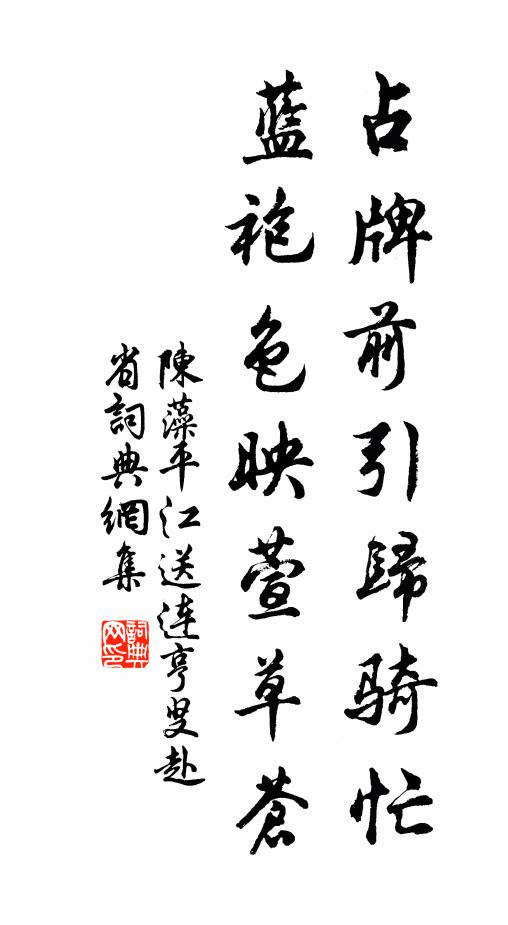 占牌前引歸騎忙
藍袍色映萱草蒼
陳藻平江送連亨叟赴
省詞典網集
詞典网印